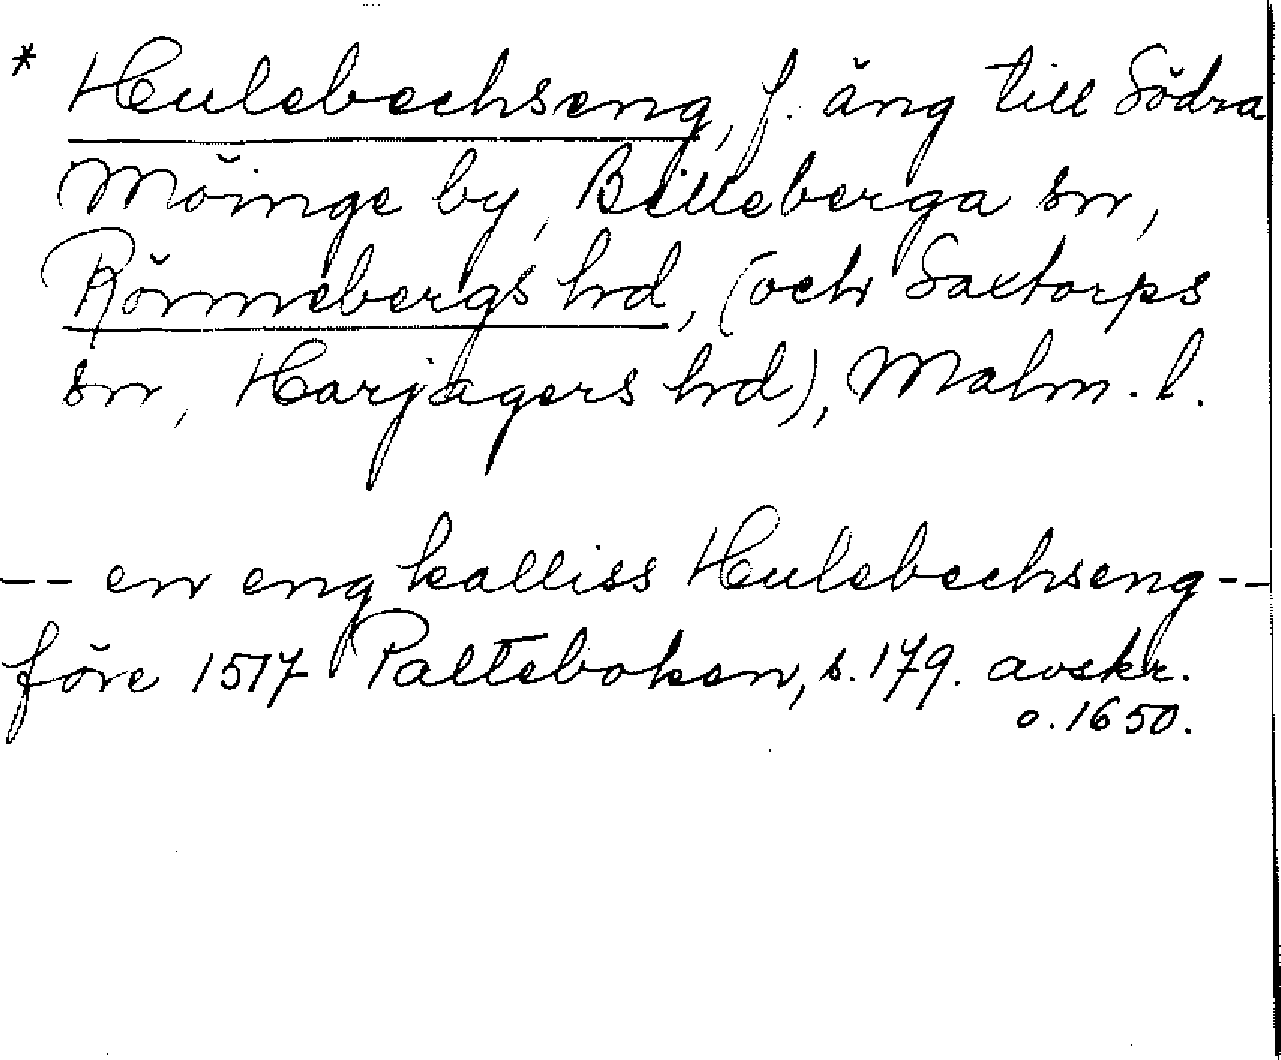 * Hulebechseng, f. äng till Södra
Möinge by, Billeberga sn,
Rönnebergs hd, (och Saxtorps
sn, Harjagers hd), Malm. l.
-- en eng kalliss Hulebechseng --
före 1517 Palteboken, s. 179. avskr.
o. 1650.